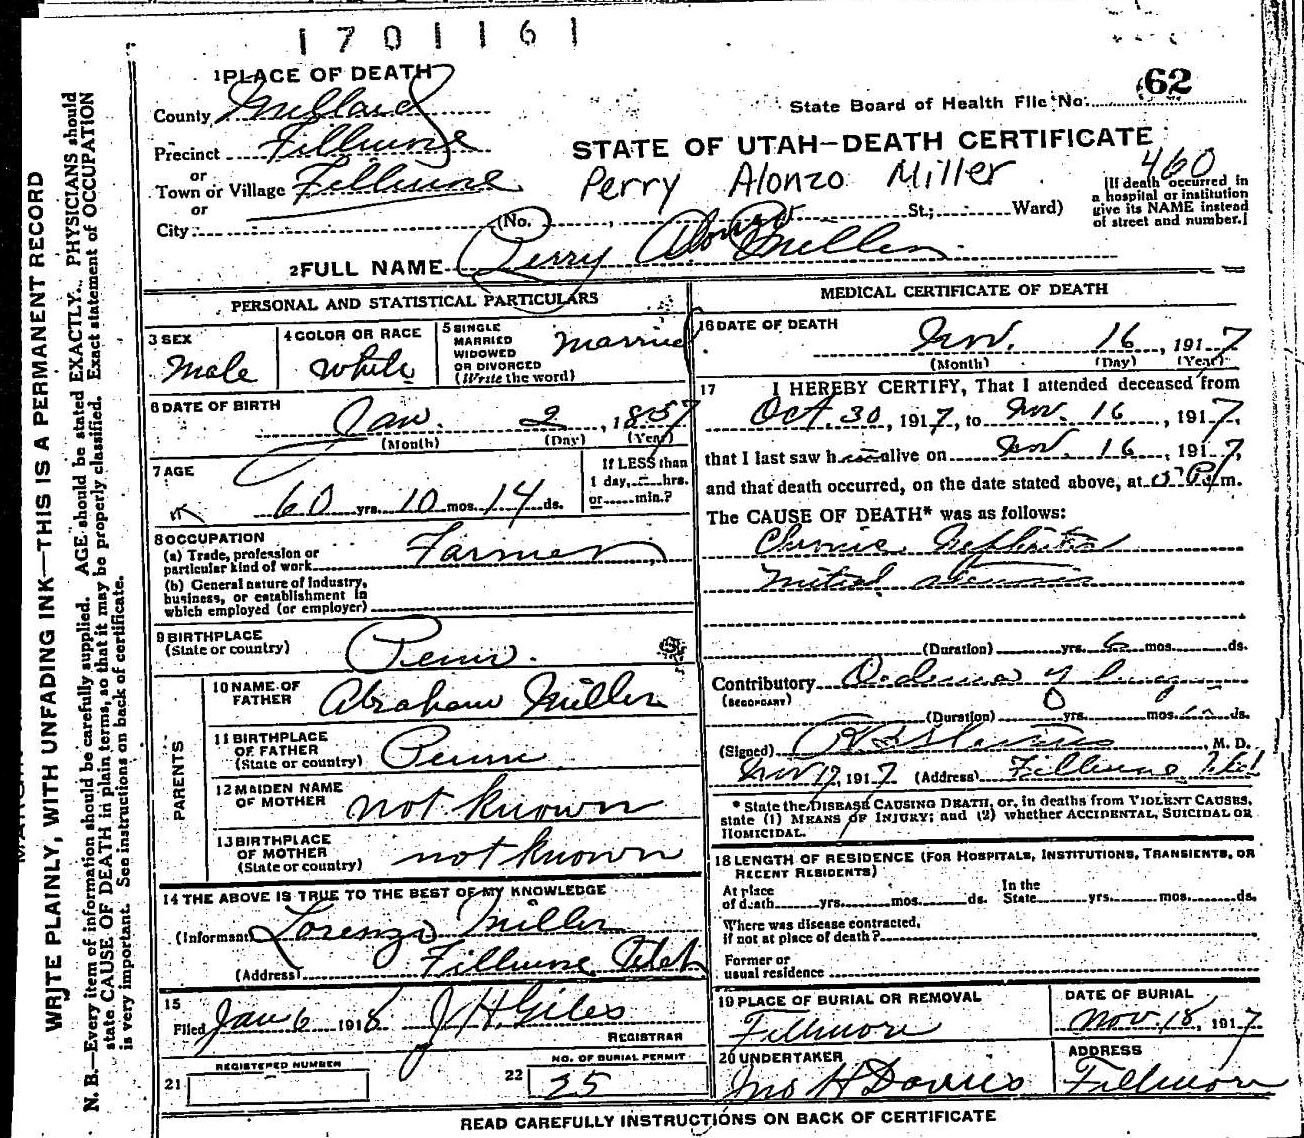 1701161
1 PLACE OF DEATH
62
County Millard
State Board of Health File No.
Precinct Fillmore
STATE OF UTAH—DEATH CERTIFICATE
or
Town or Village Fillmore
Perry Alonzo Miller
460
[If death occurred in
a hospital or institution
give its NAME instead
of street and number.]
or
City (No. , St.; Ward)
2 FULL NAME Perry Alonzo Miller
PERSONAL AND STATISTICAL PARTICULARS
3 SEX
Male
4 COLOR OR RACE
White
5 SINGLE
MARRIED
WIDOWED
OR DIVORCED
(Write the word)
Married
6 DATE OF BIRTH
Jan. 2, 1857
(Month) (Day) (Year)
7 AGE
60 yrs. 10 mos. 14 ds.
If LESS than
1 day, hrs.
or min.?
8 OCCUPATION
(a) Trade, profession or
particular kind of work Farmer
(b) General nature of Industry,
business, or establishment in
which employed (or employer)
9 BIRTHPLACE
(State or country)
Penn.
PARENTS
10 NAME OF
FATHER
Abraham Miller
11 BIRTHPLACE
OF FATHER
(State or country)
Penn
12 MAIDEN NAME
OF MOTHER
not known
13 BIRTHPLACE
OF MOTHER
(State or country)
not known
14 THE ABOVE IS TRUE TO THE BEST OF MY KNOWLEDGE
(Informant) Lorenzo Miller
(Address) Fillmore Utah
15
Filed Jan 6 1918 J H Giles
REGISTRAR
REGISTERED NUMBER
21
NO. OF BURIAL PERMIT
22 25
MEDICAL CERTIFICATE OF DEATH
16 DATE OF DEATH
Nov. 16, 1917
(Month) (Day) (Year)
17 I HEREBY CERTIFY, That I attended deceased from
Oct. 30, 1917, to Nov. 16, 1917,
that I last saw him alive on Nov. 16, 1917,
and that death occurred, on the date stated above, at P m.
The CAUSE OF DEATH* was as follows:
Chronic Nephritis
Mitral stenosis
(Duration) yrs. 6 mos. ds.
Contributory Oedema of lungs
(SECONDARY)
(Duration) yrs. mos. ds.
(Signed) M. D.
Nov 17, 1917 (Address) Fillmore, Utah
* State the DISEASE CAUSING DEATH, or, in deaths from VIOLENT CAUSES,
state (1) MEANS OF INJURY; and (2) whether ACCIDENTAL, SUICIDAL OR
HOMICIDAL.
18 LENGTH OF RESIDENCE (FOR HOSPITALS, INSTITUTIONS, TRANSIENTS, OR
RECENT RESIDENTS)
At place
of death yrs. mos. ds.
In the
State yrs. mos. ds.
Where was disease contracted,
if not at place of death?
Former or
usual residence
19 PLACE OF BURIAL OR REMOVAL
Fillmore
DATE OF BURIAL
Nov. 18, 1917
20 UNDERTAKER
Jno H Davies
ADDRESS
Fillmore
READ CAREFULLY INSTRUCTIONS ON BACK OF CERTIFICATE
WRITE PLAINLY, WITH UNFADING INK—THIS IS A PERMANENT RECORD
N. B.—Every item of information should be carefully supplied. AGE should be stated EXACTLY. PHYSICIANS should
state CAUSE OF DEATH in plain terms, so that it may be properly classified. Exact statement of OCCUPATION
is very important. See instructions on back of certificate.